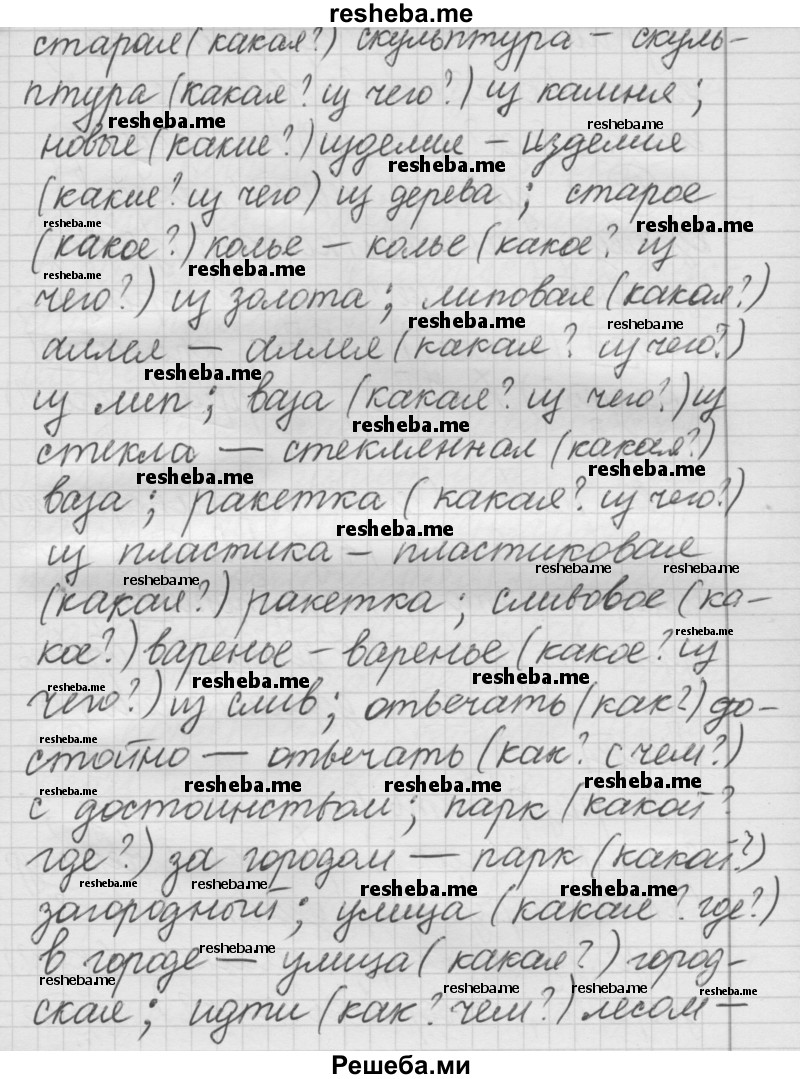 resheba.me
старая (какая?) скульптура – скуль-
птура (какая? из чего?) из камня;
resheba.me resheba.me
новые (какие?) изделия – изделия
resheba.me
(какие? из чего) из дерева; старое
resheba.me resheba.me
(какое?) колье – колье (какое? из
resheba.me resheba.me
чего?) из золота; липовая (какая?)
resheba.me resheba.me
аллея – аллея (какая? из чего?)
resheba.me
из лип; ваза (какая? из чего?) из
стекла – стеклянная (какая?)
resheba.me resheba.me
ваза; ракетка (какая? из чего?)
resheba.me
из пластика – пластиковая
resheba.me resheba.me resheba.me
(какая?) ракетка; сливовое (ка-
resheba.me
кое?) варенье – варенье (какое? из
resheba.me resheba.me resheba.me
чего?) из слив; отвечать (как?) до-
resheba.me
стойно – отвечать (как? с чем?)
resheba.me resheba.me resheba.me resheba.me
с достоинством; парк (какой?
где?) за городом – парк (какой?)
resheba.me resheba.me resheba.me resheba.me
загородный; улица (какая? где?)
resheba.me
в городе – улица (какая?) город-
resheba.me resheba.me resheba.me resheba.me
ская; идти (как? чем?) лесом –
Решеба.ми